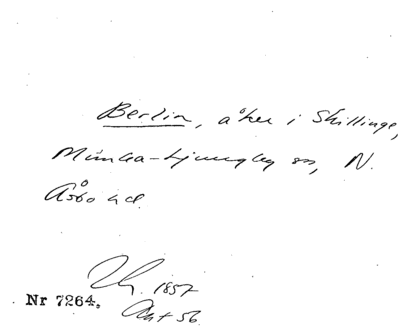 Berlin, åker i Skillinge,
Munka-Ljungby sn, N.
Åsbo hd.
1857
Nr 7264.
Akt 56